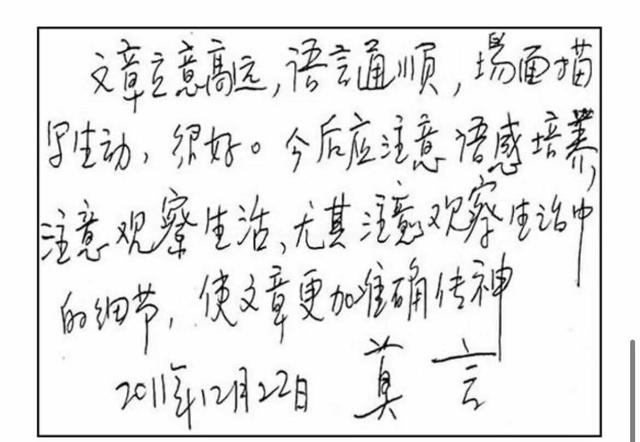 文章立意高远，语言通顺，場面描
写生动，很好。今后应注意语感培养，
注意观察生活，尤其注意观察生活中
的细节，使文章更加准确传神
2011年12月22日 莫言